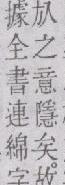 㫃之意隱矣。故
據全書連綿字